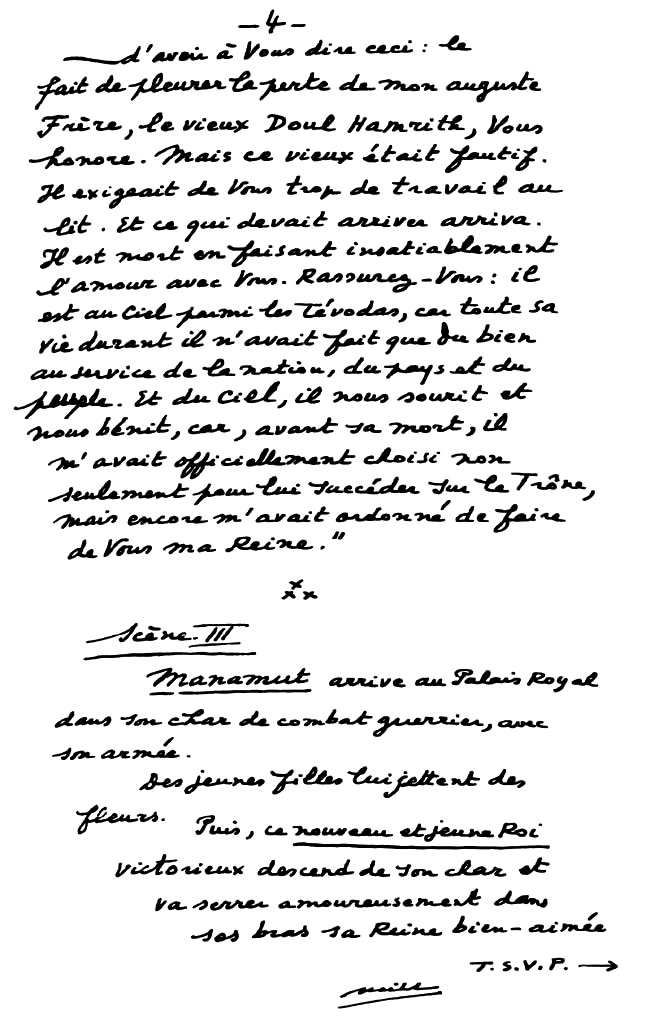 - 4 -
d'avoir à Vous dire ceci : le
fait de pleurer la perte de mon auguste
Frère, le vieux Doul Hamrith, Vous
honore. Mais ce vieux était fautif.
Il exigeait de Vous trop de travail au
lit. Et ce qui devait arriver arriva.
Il est mort en faisant insatiablement
l'amour avec Vous. Rassurez-Vous : il
est au Ciel parmi les Tévodas, car toute sa
vie durant il n'avait fait que du bien
au service de la nation, du pays et du
peuple. Et du Ciel, il nous sourit et
nous bénit, car, avant sa mort, il
m'avait officiellement choisi non
seulement pour lui succéder sur le Trône,
mais encore m'avait ordonné de faire
de Vous ma Reine."
x x x
Scène III
Manamut arrive au Palais Royal
dans son char de combat guerrier, avec
son armée.
Des jeunes filles lui jettent des
fleurs.
Puis, ce nouveau et jeune Roi
victorieux descend de son char et
va serrer amoureusement dans
ses bras sa Reine bien-aimée
T.S.V.P. →